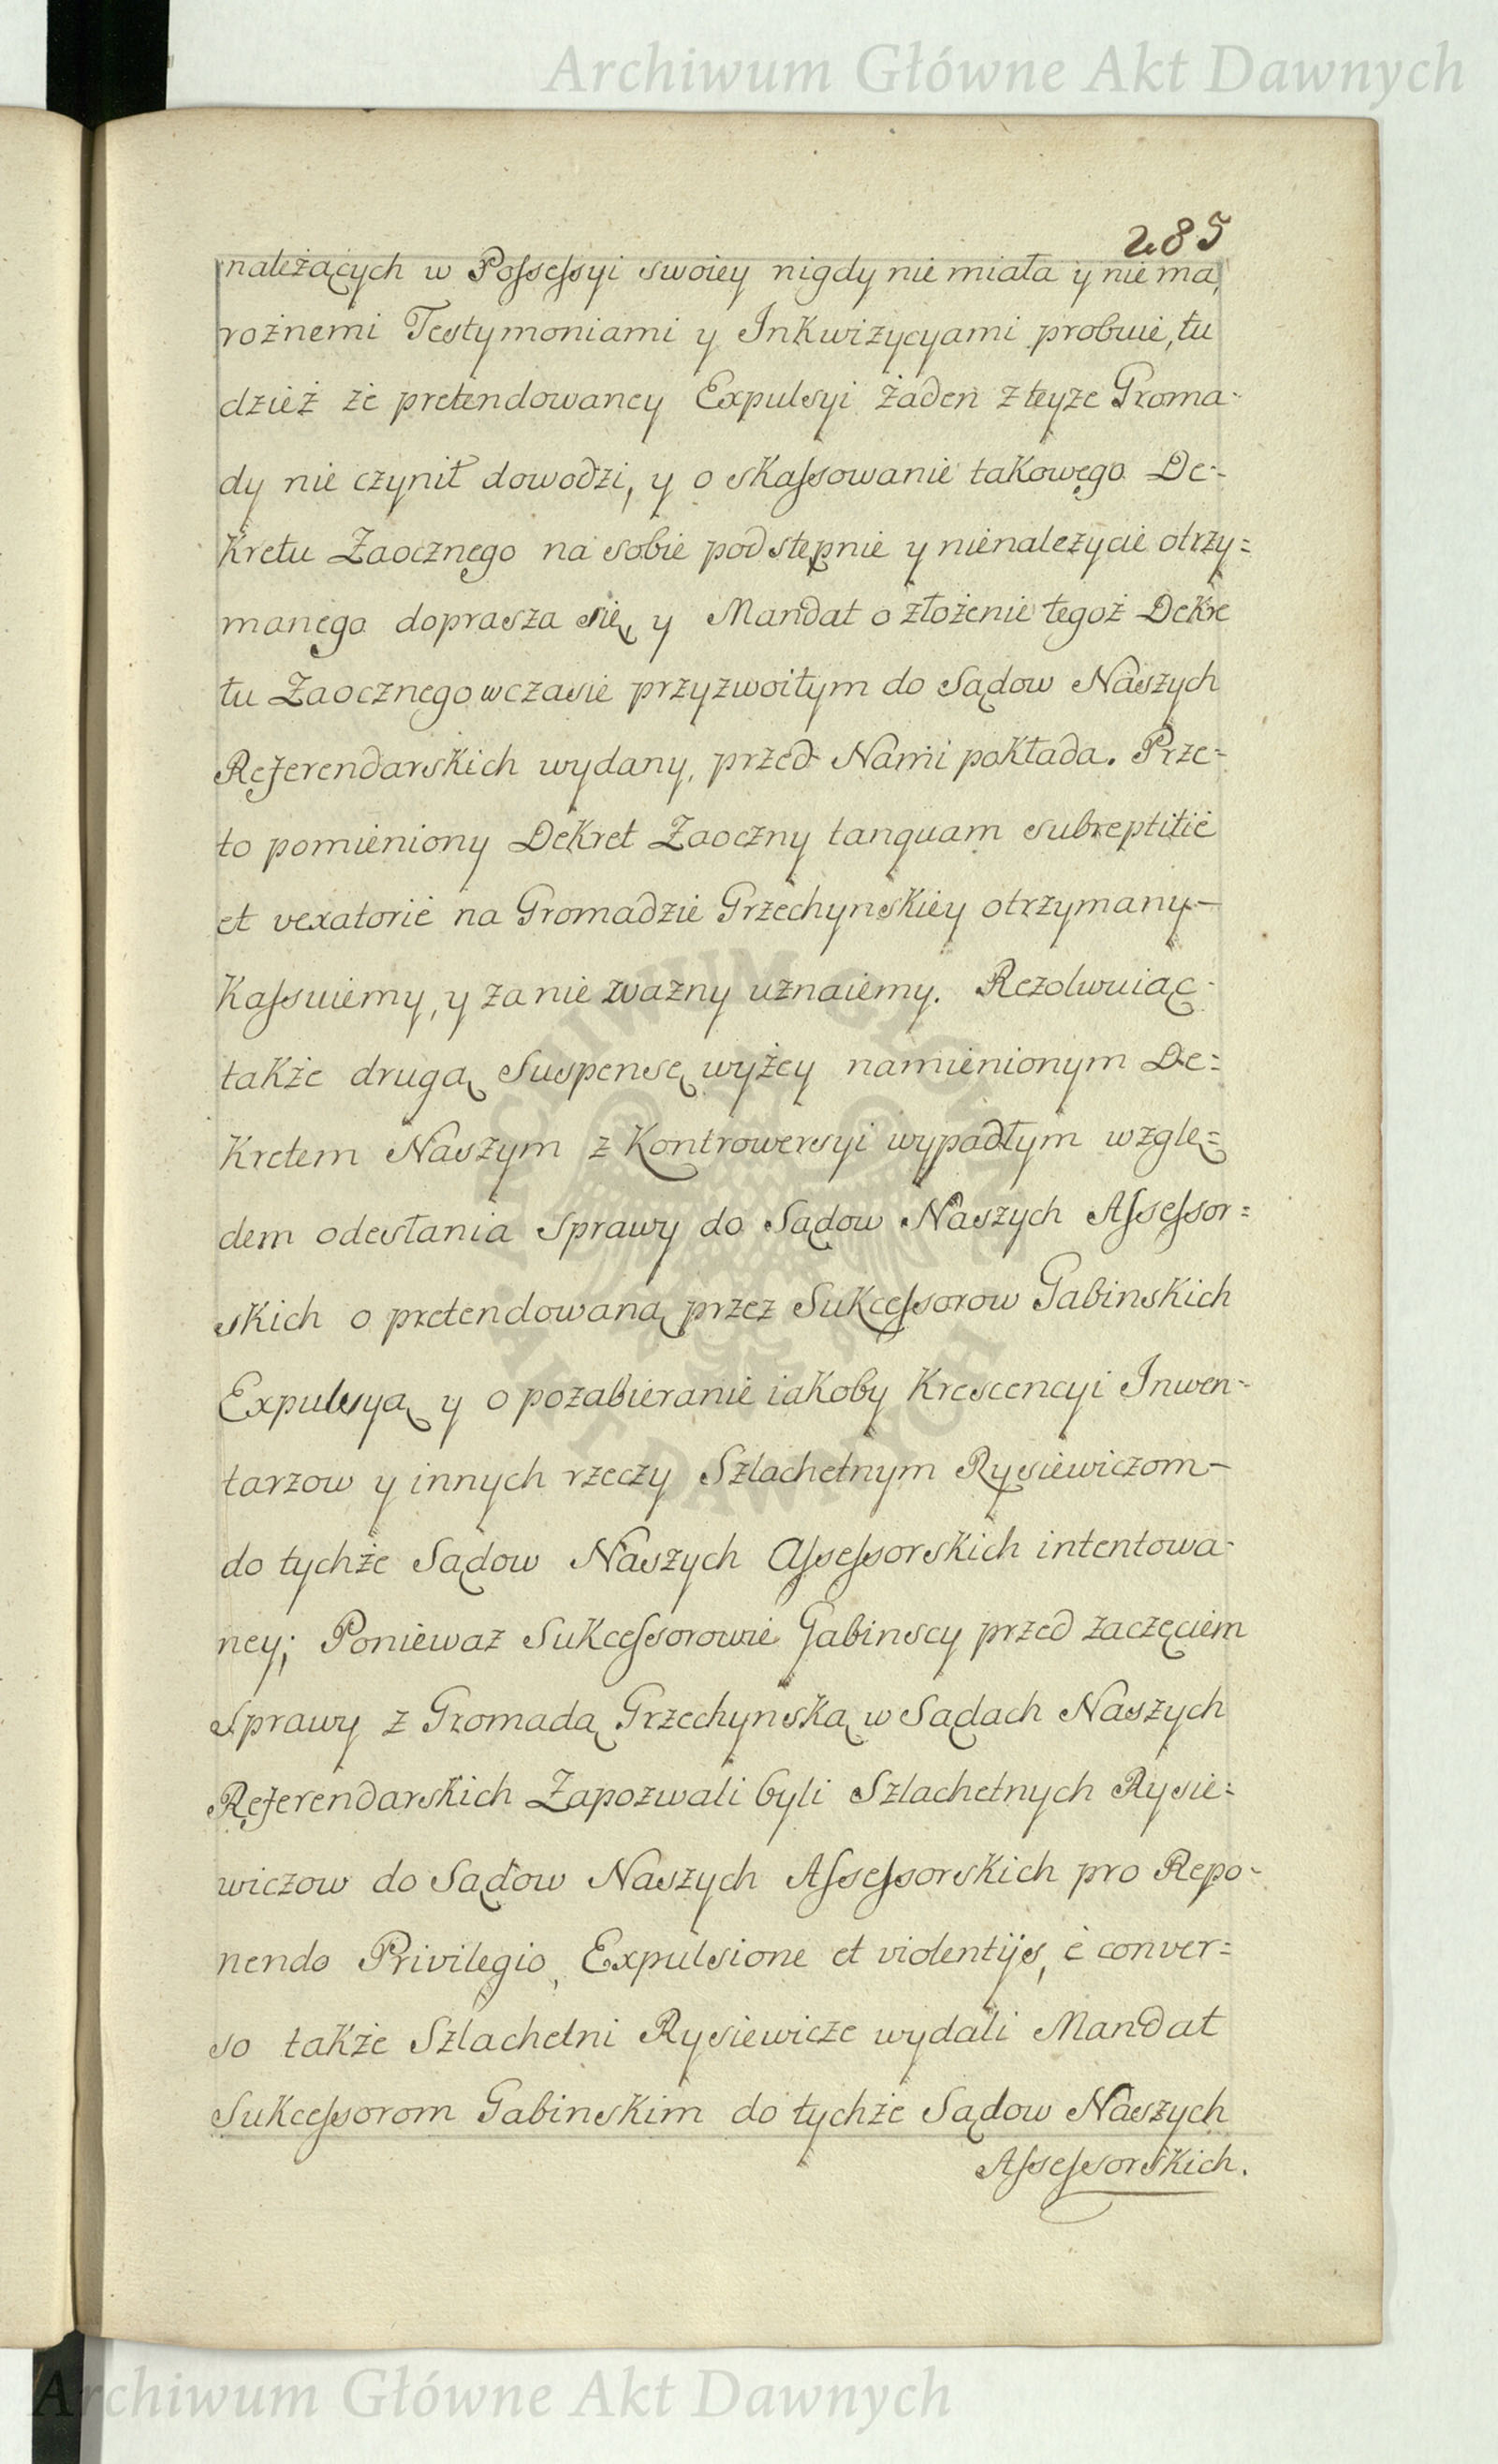 Archiwum Główne Akt Dawnych
285
należących w Possessyi swoiey nigdy nie miała y nie ma,
rożnemi Testymoniami y Inkwizycyami probuie, tu
dzież że pretendowaney Expulsyi żaden z teyże Groma-
dy nie czynił dowodzi, y o skassowanie takowego De-
kretu Zaocznego na sobie podstępnie y nienależycie otrzy=
manego doprasza się, y Mandat o złożenie tegoż Dekre
tu Zaocznego w czasie przyzwoitym do Sądow Naszych
Referendarskich wydany, przed Nami pokłada. Prze-
to pomieniony Dekret Zaoczny tanquam subreptitie
et vexatorie na Gromadzie Grzechynskiey otrzymany-
Kassuiemy, y za nie ważny uznaiemy. Rezolwuiąc-
także drugą Suspensę wyżey namienionym De=
kretem Naszym z Kontrowersyi wypadłym wzglę=
dem odesłania Sprawy do Sądow Naszych Assessor=
skich o pretendowaną przez Sukcessorow Gabinskich
Expulsyą y o pozabieranie iakoby Krescencyi Inwen-
tarzow y innych rzeczy Szlachetnym Rysiewiczom-
do tychże Sądow Naszych Assessorskich intentowa-
ney; Ponieważ Sukcessorowie Gabinscy przed zaczęciem
Sprawy z Gromadą Grzechynską w Sądach Naszych
Referendarskich Zapozwali byli Szlachetnych Rysie=
wiczow do Sądow Naszych Assessorskich pro Repo-
nendo Privilegio, Expulsione et violentijs, è conver=
so także Szlachetni Rysiewicze wydali Mandat
Sukcessorom Gabinskim do tychże Sądow Naszych
Assessorskich.
Archiwum Główne Akt Dawnych